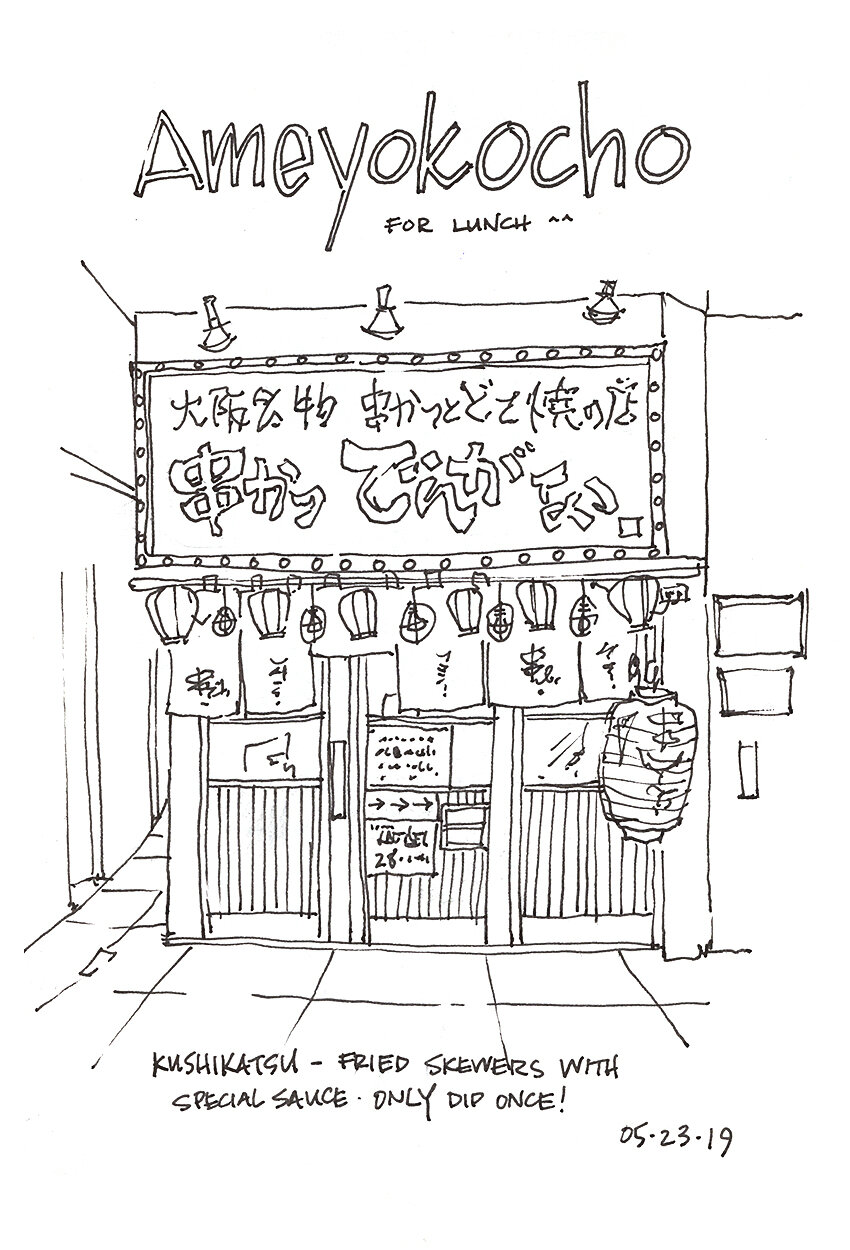 Ameyokocho
FOR LUNCH ^^
大阪名物 串かつとどて焼の店
串かつ でんがな
串かつ
→→→
KUSHIKATSU - FRIED SKEWERS WITH
SPECIAL SAUCE · ONLY DIP ONCE!
05·23·19